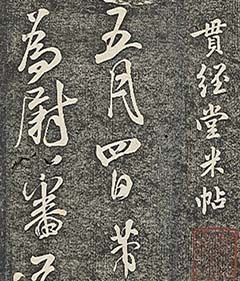 貫經堂米帖
五月四日芾
為尉審